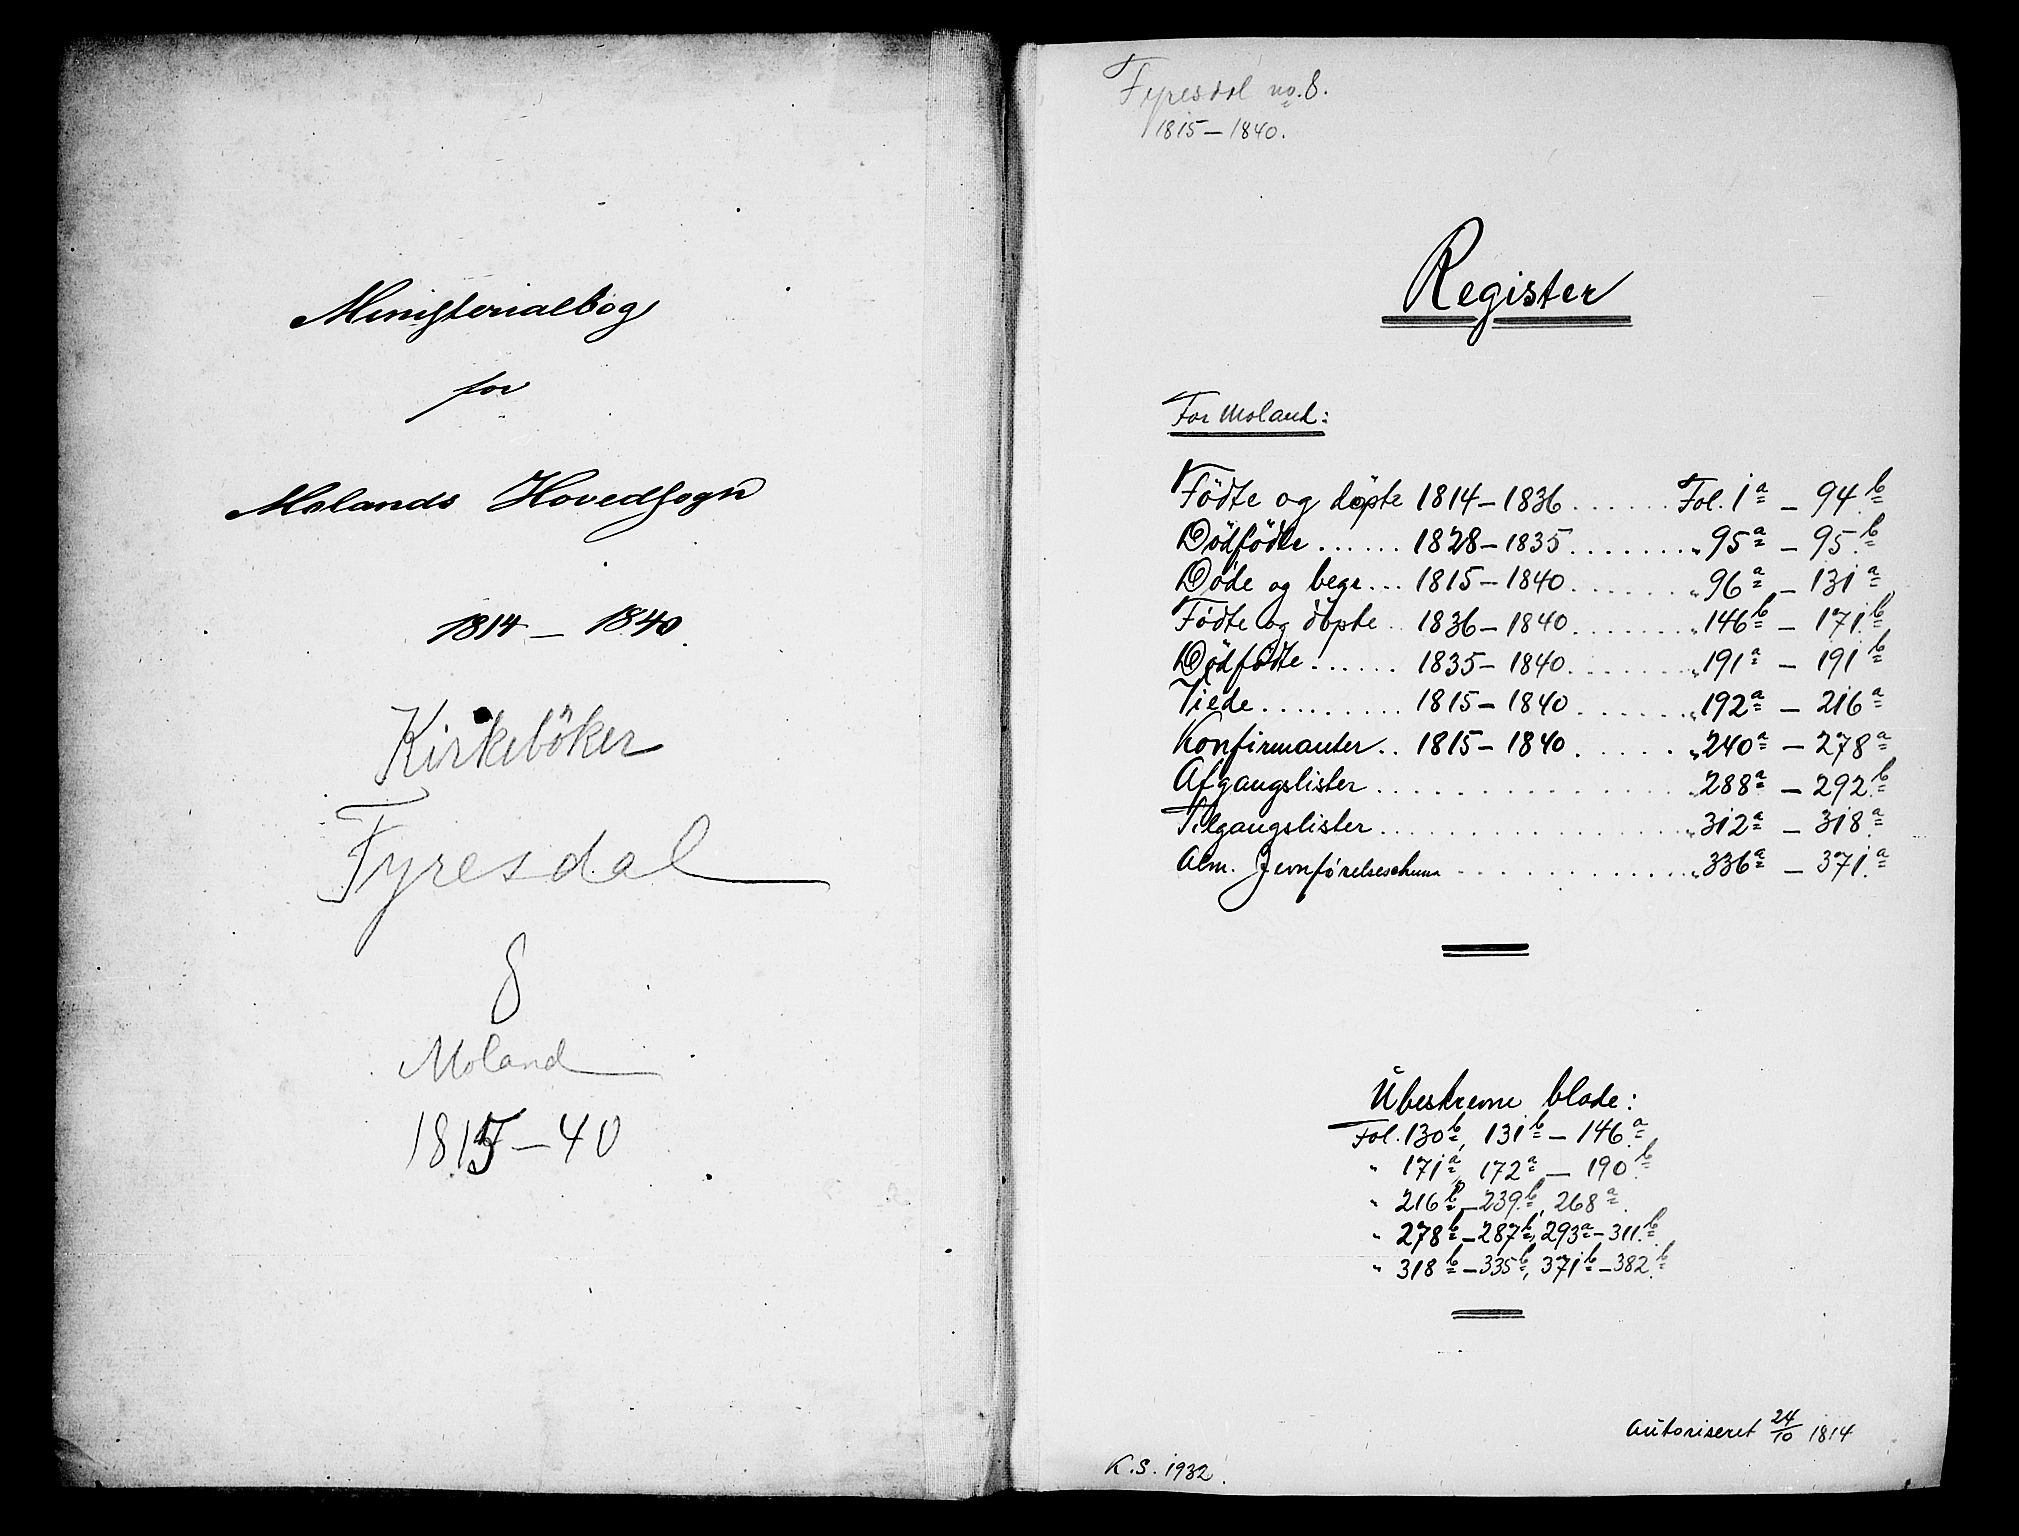 Ministerialbog
for
Molands Hovedsogn
1814 – 1840.
Kirkeböker
Fyresdal
8
Moland
1815–40
Fyresdal no. 8.
1815–1840.
Register
For Moland:
Födte og döpte 1814–1836 ...... Fol. 1a – 94b
Dödfödte ...... 1828–1835 ....... „ 95a – 95b
Döde og begr... 1815–1840 ....... „ 96a – 131a
Födte og döpte .. 1836–1840 ....... „ 146b – 171b
Dödfödte ...... 1835–1840 ....... „ 191a – 191b
Viede ......... 1815–1840 ...... „ 192a – 216a
Konfirmanter .. 1815–1840 ...... „ 240a – 278a
Afgangslister ............... „ 288a – 292b
Tilgangslister ............... „ 312a – 318a
Alm. Jevnförelses ............. „ 336a – 371a
Ubeskrevne blade:
Fol. 130b, 131b – 146a
„ 171a, 172a – 190b
„ 216b – 239b, 268a.
„ 278b – 287b, 293a – 311b
„ 318b – 335b, 371b – 382b
Autoriseret 24/10 1814
K.S. 1932.